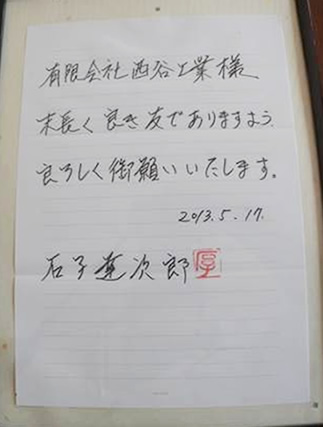 有限会社西谷工業様
末長く良き友でありますよう
良ろしく御願いいたします。
2013.5.17.
石子達次郎